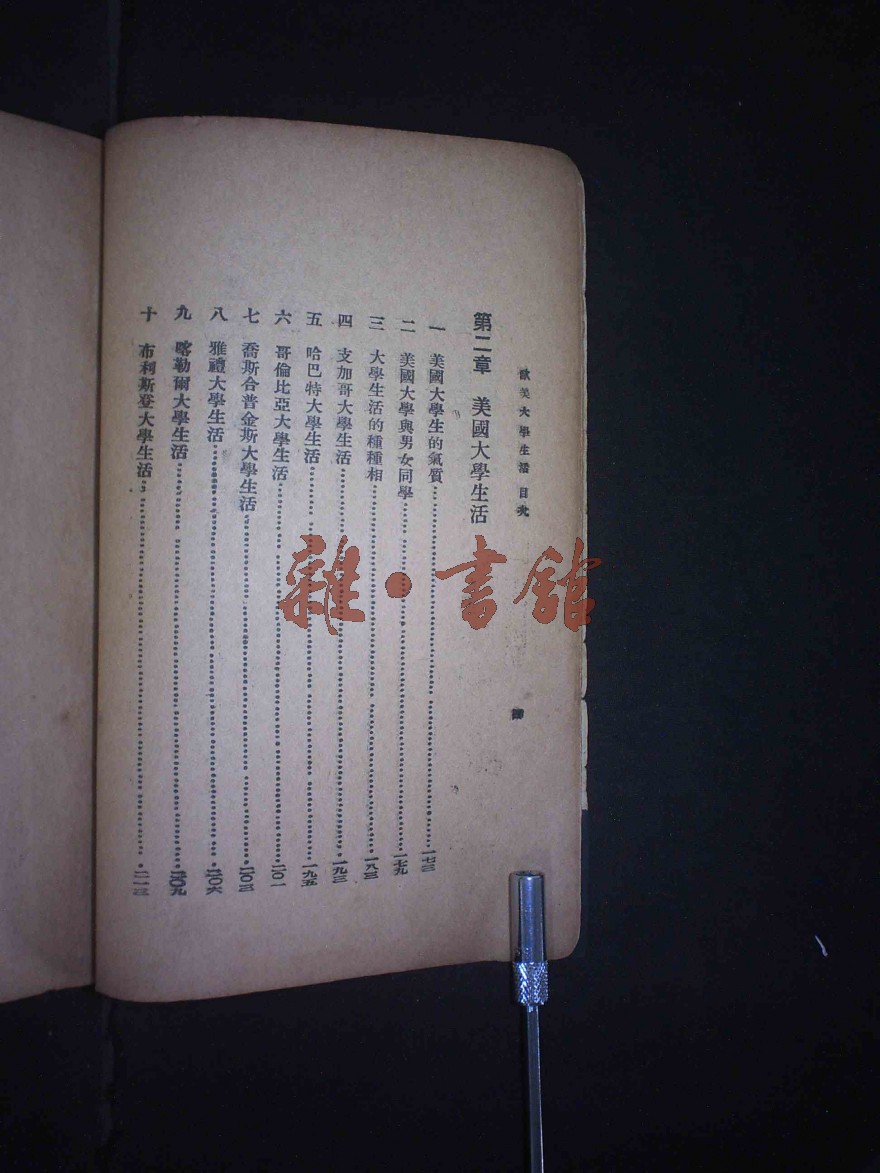 歐美大學生活 目次
四
第二章 美國大學生活
一 美國大學生的氣質 一七三
二 美國大學與男女同學 一七九
三 大學生活的種種相 一八三
四 支加哥大學生活 一九三
五 哈巴特大學生活 一九五
六 哥倫比亞大學生活 二〇一
七 喬斯合普金斯大學生活 二〇三
八 雅禮大學生活 二〇六
九 喀勒爾大學生活 二〇九
十 布利斯登大學生活 二一三
雜·書館